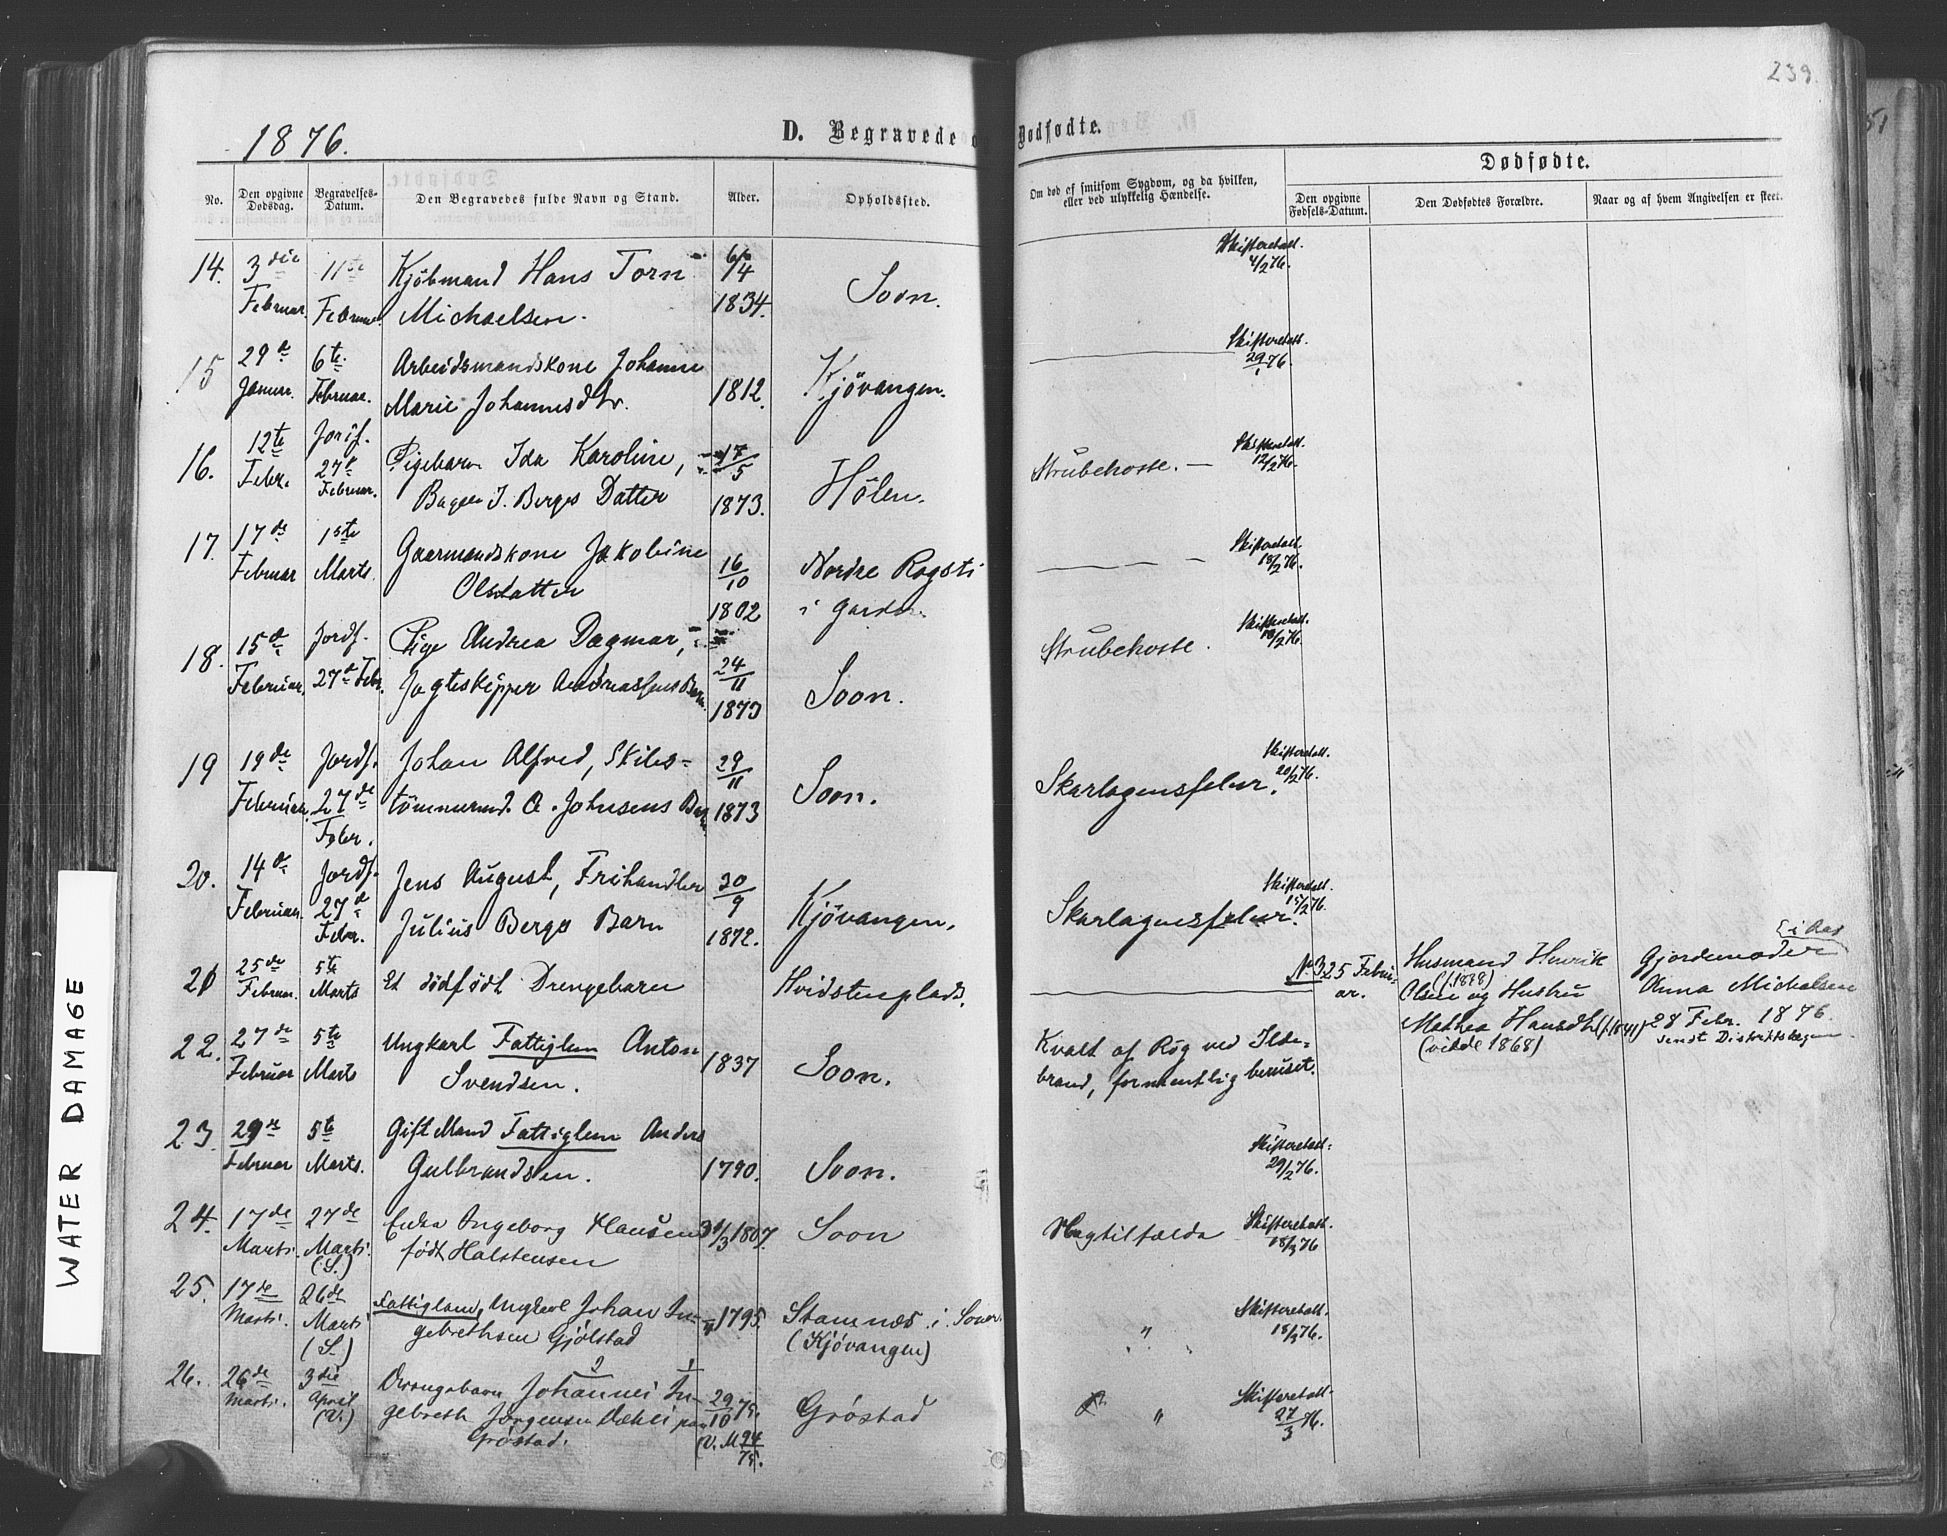 239.
51
1876.
D. Begravede o
Dødfødte.
Dødfødte.
No.
Den opgivne Dødsdag.
Begravelses-Datum.
Den Begravedes fulde Navn og Stand.
Alder.
Opholdssted.
Om død af smitsom Sygdom, og da hvilken, eller ved ulykkelig Hændelse.
Den opgivne Fødsels-Datum.
Den Dødfødtes Forældre.
Naar og af hvem Angivelsen er skeet.
14. 3die 11te Kjøbmand Hans Torn 6/4 Soon. Skifteretatt.
Februar. Februar Michaelsen. 1834. 4/2 76.
15 29de 6te Arbeidsmandskone Johanne Kjøvangen. Skifteretatt.
Januar. Februar. Marie Johannesdtr. 1812. 29/1 76.
16. 12te Jordf. Pigebarn Ida Karoline, 17/5 Hølen. Strubehoste. Skifteretatt. 12/2 76.
Febr. 27de Februar. Bager J. Bergs Datter 1873.
17. 17de 1ste Gaarmandskone Jakobine 16/10 Nordre Rogsti Skifteretatt. 18/2 76.
Februar Marts. Olsdatter 1802 i Garder.
18. 15de Jordf. Pige Andrea Dagmar, 24/11 Soon. Strubehoste. Skifteretatt. 18/2 76.
Februar. 27de Febr. Jagtskipper Andreassens Barn 1873
19 19de Jordf. Johan Alfred, Skibs- 29/11 Soon. Skarlagensfeber. Skifteretatt. 20/2 76.
Februar. 27de Febr. tømmermd. A. Johnsens Barn 1873
20. 14de Jordf. Jens August, Frihandler 30/9 Kjøvangen. Skarlagensfeber. Skifteretatt. 15/2 76.
Februar. 27de Febr. Julius Bergs Barn 1872.
21 25de 5te Et dødfødt Drengebarn Hvidstenplads. No 3. 25 Februar.
Februar. Marts
Husmand Henrik
Olsen (f. 1838) og Hustru
Mathea Hansdtr (f. 1841)
(viede 1868)
Gjordemoder i Aas
Anna Michelsen
28 Febr. 1876.
sendt Distriktslægen
22. 27de 5te Ungkarl Fattiglem Anton 1837 Soon. Kvalt af Røg ved Ilde-
Februar Marts Svendsen. brand, formentlig beruset.
23. 29de 5te Gift Mand Fattiglem Anders Skifteretatt.
Februar Marts. Gulbrandsen. 1790. Soon. 29/2 76.
24. 17de 27de Enke Ingeborg Hansen 31/3 1807. Soon Skifteretatt.
Marts. Marts. (S.) født Halstensen 18/3 76
25. 17de 26de Fattiglem, Ungkarl Johan In- 1795. Stamnes i Soner Skifteretatt.
Marts. Marts (S.) gebrethsen Gjølstad (Kjøvangen) " 18/3 76.
26. 26de 3die Drengebarn Johannes In- 29/10 75. Grøstad " Skifteretatt.
Marts. April (V.) gebreth Jørgensen Dæhli paa (V. M 24/75. 27/3 76.
Grøstad.
WATER DAMAGE